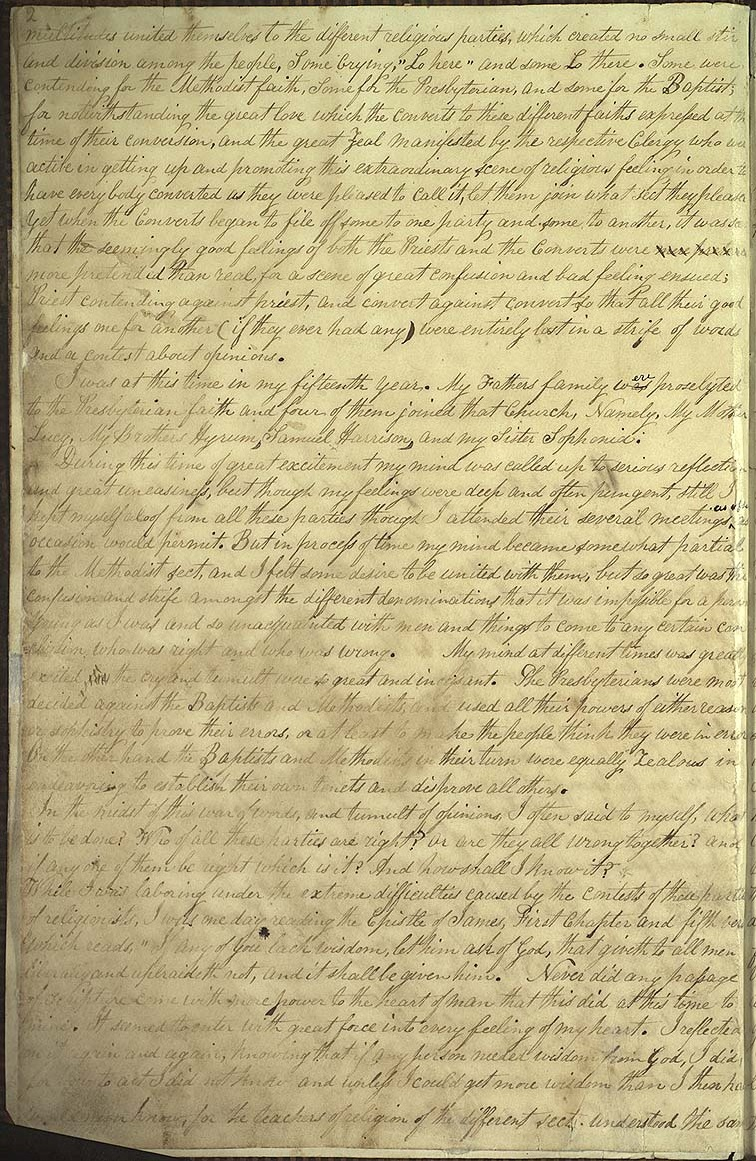 2
multitudes united themselves to the different religious parties, which created no small stir
and division among the people, Some Crying, "Lo here" and some Lo there. Some were
contending for the Methodist faith, Some for the Presbyterian, and some for the Baptist;
for notwithstanding the great love which the converts to these different faiths expressed at
time of their conversion, and the great Zeal manifested by the respective Clergy who
active in getting up and promoting this extraordinary scene of religious feeling in order to
have everybody converted as they were pleased to call it, let them join what sect they pleased
Yet when the Converts began to file off some to one party and some to another, it was
that the seemingly good feelings of both the Priests and the Converts were
more pretended than real, for a scene of great confusion and bad feeling ensued;
Priest contending against priest, and convert against convert so that all their good
feelings one for another (if they ever had any) were entirely lost in a strife of words
and a contest about opinions.
I was at this time in my fifteenth year. My Fathers family were proselyted
to the Presbyterian faith and four of them joined that Church, Namely, My Mother
Lucy, My Brothers Hyrum, Samuel Harrison, and my Sister Sophonia.
During this time of great excitement my mind was called up to serious reflection
and great uneasiness, but though my feelings were deep and often pungent, still I
kept myself aloof from all these parties though I attended their several meetings as often as
occasion would permit. But in process of time my mind became somewhat partial
to the Methodist sect, and I felt some desire to be united with them, but so great was the
confusion and strife amongst the different denominations that it was impossible for a person
young as I was and so unacquainted with men and things to come to any certain con
clusion who was right and who was wrong. My mind at different times was greatly
excited for the cry and tumult were so great and incessant. The Presbyterians were most
decided against the Baptists and Methodists, and used all their powers of either reason
or sophistry to prove their errors, or at least to make the people think they were in error
On the other hand the Baptists and Methodists in their turn were equally Zealous in
endeavoring to establish their own tenets and disprove all others.
In the midst of this war of words, and tumult of opinions, I often said to myself, what
is to be done? Who of all these parties are right? Or are they all wrong together? and
if any one of them be right which is it? And how shall I know it?
While I was laboring under the extreme difficulties caused by the contests of these parties
of religionists, I was one day reading the Epistle of James, First Chapter and fifth verse
which reads, "If any of you lack wisdom, let him ask of God, that giveth to all men
liberally and upbraideth not, and it shall be given him. Never did any passage
of scripture come with more power to the heart of man that this did at this time to
mine. It seemed to enter with great force into every feeling of my heart. I reflected
on it again and again, knowing that if any person needed wisdom from God, I did
for how to act I did not know and unless I could get more wisdom than I then had
would never know, for the teachers of religion of the different sects understood the same